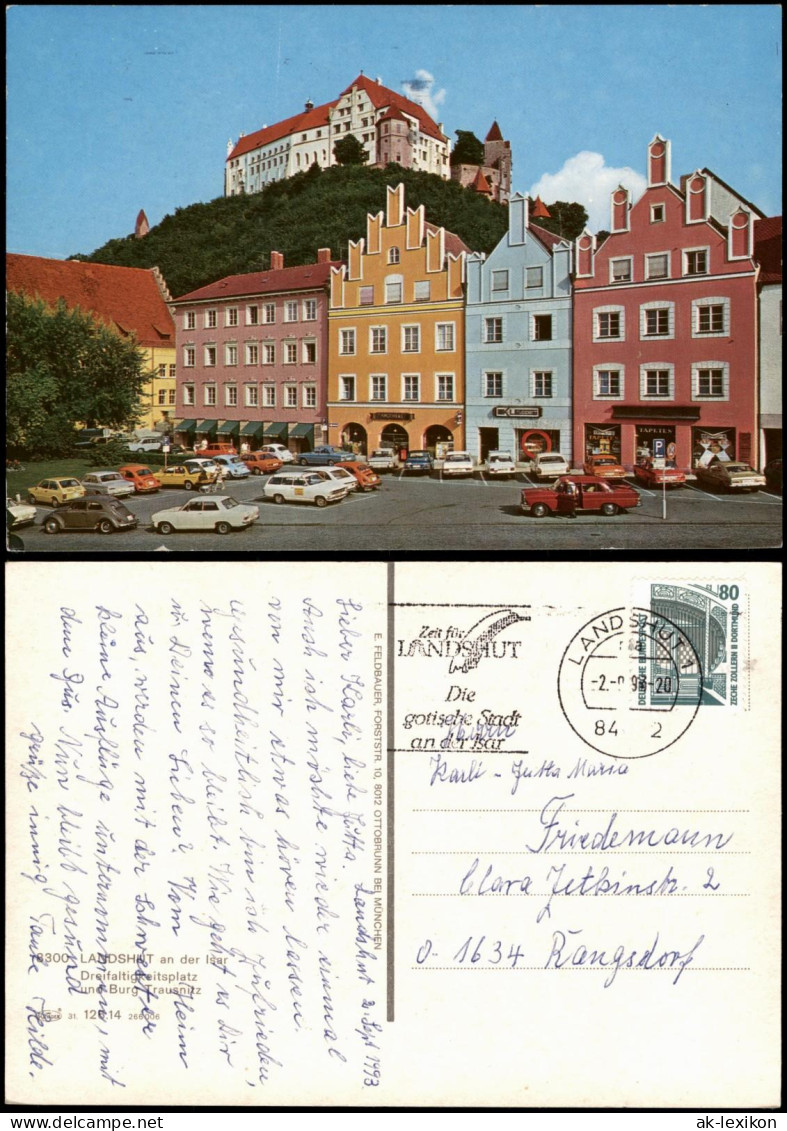 TAPETEN
P
E. FELDBAUER, FORSTSTR. 10, 8012 OTTOBRUNN BEI MÜNCHEN
Landshut 2. Sept 1993
Lieber Karli, liebe Jutta.
Auch ich möchte wieder einmal
von mir etwas hören lassen.
Gesundheitlich bin ich zufrieden,
wenn es so bleibt. Wie geht es Dir
u. Deinen Lieben? Vom Heim
aus, werden mit der Schwester
kleine Ausflüge unternommen, mit
dem Bus. Nun bleibt gesund
grüße innig Tante Hilde.
8300 LANDSHUT an der Isar
Dreifaltigkeitsplatz
und Burg Trausnitz
31. 120.14 266006
Zeit für
LANDSHUT
Die
gotische Stadt
an der Isar
LANDSHUT 1
-2.-9.93-20
84 2
80
DEUTSCHE BUNDESPOST
ZECHE ZOLLERN II DORTMUND
Karli - Jutta Maria
Friedemann
Clara Zetkinstr. 2
O-1634 Rangsdorf
ak-lexikon
ak-lexikon.com